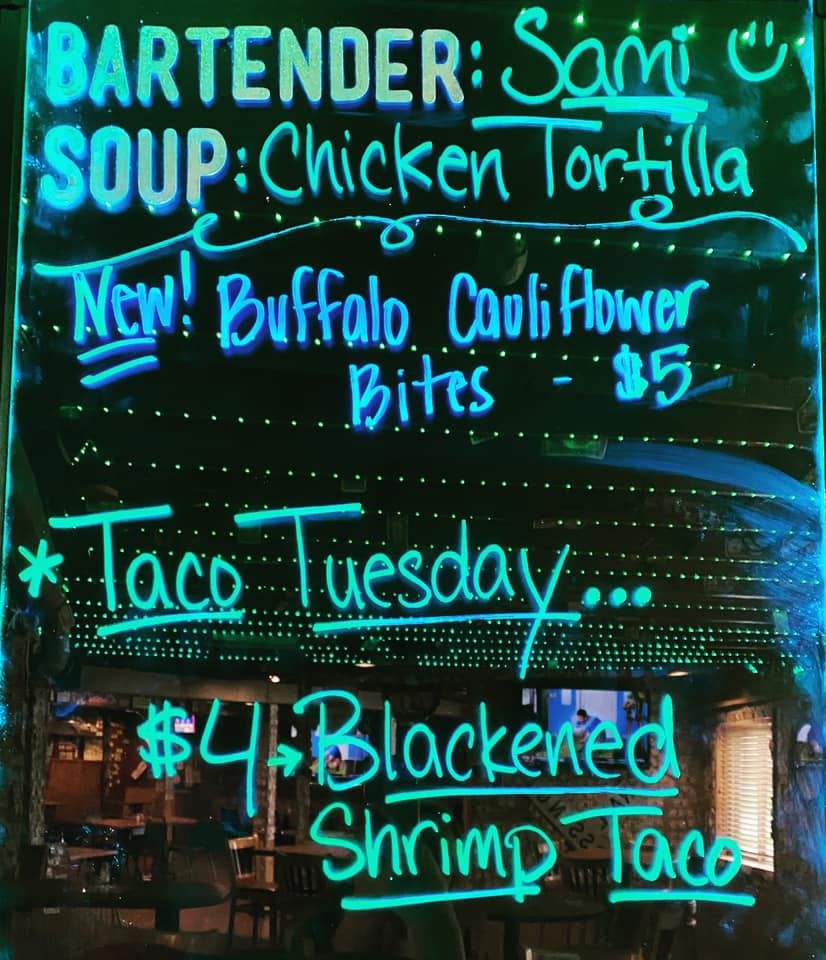 BARTENDER: Sami
SOUP: Chicken Tortilla
New! Buffalo Cauliflower
Bites - $5
* Taco Tuesday...
$4 → Blackened
Shrimp Taco